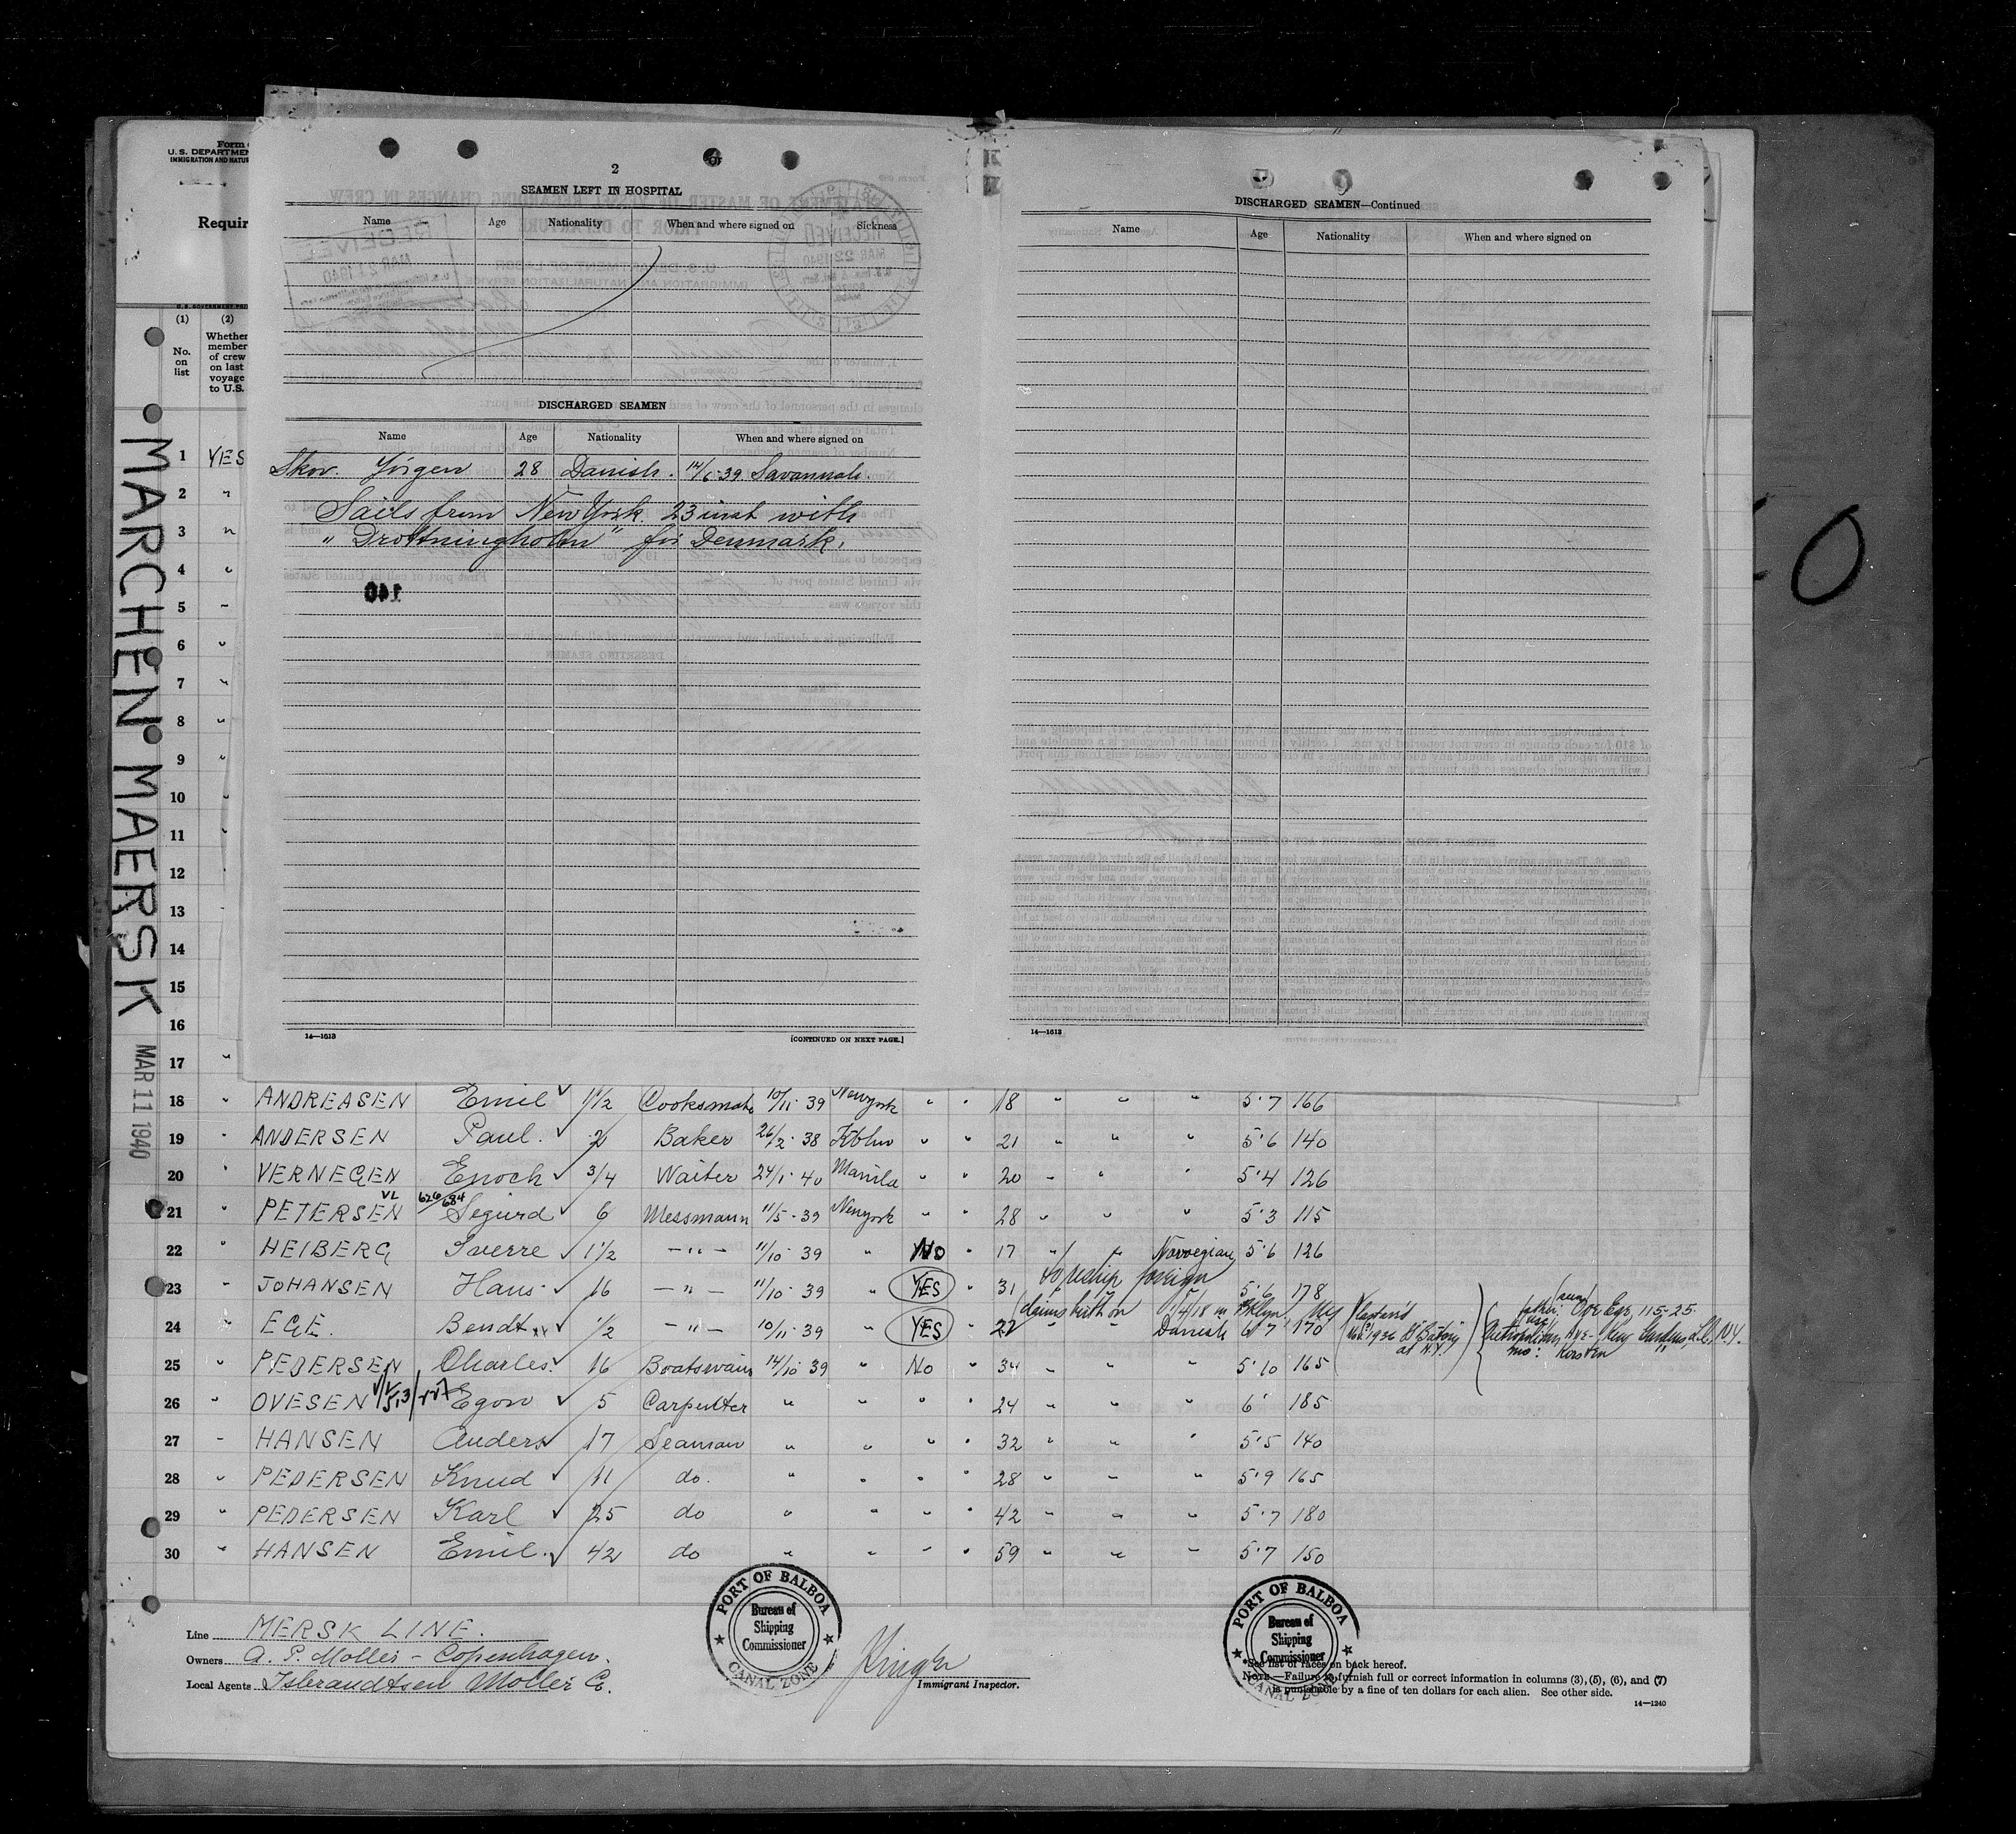 Form
U.S. DEPARTMEN
IMMIGRATION AND NATUR
Requir
(1) (2)
No. on list
Whether member of crew on last voyage to U.S.
MARCHEN MAERSK
MAR 11 1940
2
SEAMEN LEFT IN HOSPITAL
Name Age Nationality When and where signed on Sickness
DISCHARGED SEAMEN
Name Age Nationality When and where signed on
Skov. Jörgen 28 Danish. 14/6-39 Savannah.
Sails from New York. 23 inst with
"Drottningholm" for Denmark.
140
14—1613 [CONTINUED ON NEXT PAGE.]
DISCHARGED SEAMEN—Continued
Name Age Nationality When and where signed on
14—1613
0
1 YES
2 "
3 "
4 "
5 "
6 "
7 "
8 "
9 "
10 "
11 "
12 "
13
14
15
16
17 "
18 " ANDREASEN Emil 1 1/2 Cooksmate 10/11-39 Newyork " " 18 " " " 5'7 166
19 " ANDERSEN Paul. 2 Baker 26/2-38 Kbhn " " 21 " " " 5'6 140
20 " VERNEGEN Enoch 3/4 Waiter 24/1-40 Manila " " 20 " " " 5'4 126
21 " PETERSEN VL 626/684 Sigurd 6 Messmann 11/5-39 Newyork " " 28 " " " 5'3 115
22 " HEIBERG Sverre 1 1/2 -"- 11/10-39 " No " 17 " " Norvegian 5'6 126
23 " JOHANSEN Hans 16 -"- 11/10-39 " YES " 31 " " 5'6 178
to reship foreign
24 " EGE. Bendt 1/2 -"- 10/11-39 " YES " 22 " " Danish 6'7 170
claims birth on 1/4/18 in Bklyn, NY
at N.Y.
father: Ove Ege, 115-25
Metropolitan Ave - Kew Gardens, L.I., N.Y.
mo: Kirsten "
25 " PEDERSEN Charles. 16 Boatswain 14/10-39 " No " 34 " " " 5'10 165
26 " OVESEN Egon 5 Carpulter " " " " 24 " " " 6' 185
27 " HANSEN Anders 17 Seaman " " " " 32 " " " 5'5 140
28 " PEDERSEN Knud 11 do. " " " " 28 " " " 5'9 165
29 " PEDERSEN Karl 25 do " " " " 42 " " " 5'7 180
30 " HANSEN Emil. 42 do " " " " 59 " " " 5'7 150
Line MERSK LINE.
Owners A. P. Moller - Copenhagen.
Local Agents Isbrandtsen Moller C.
PORT OF BALBOA
Bureau of
Shipping
Commissioner
CANAL ZONE
Immigrant Inspector.
PORT OF BALBOA
Bureau of
Shipping
Commissioner
CANAL ZONE
*See list of races on back hereof.
NOTE.—Failure to furnish full or correct information in columns (3), (5), (6), and (7)
is punishable by a fine of ten dollars for each alien. See other side.
14—1240